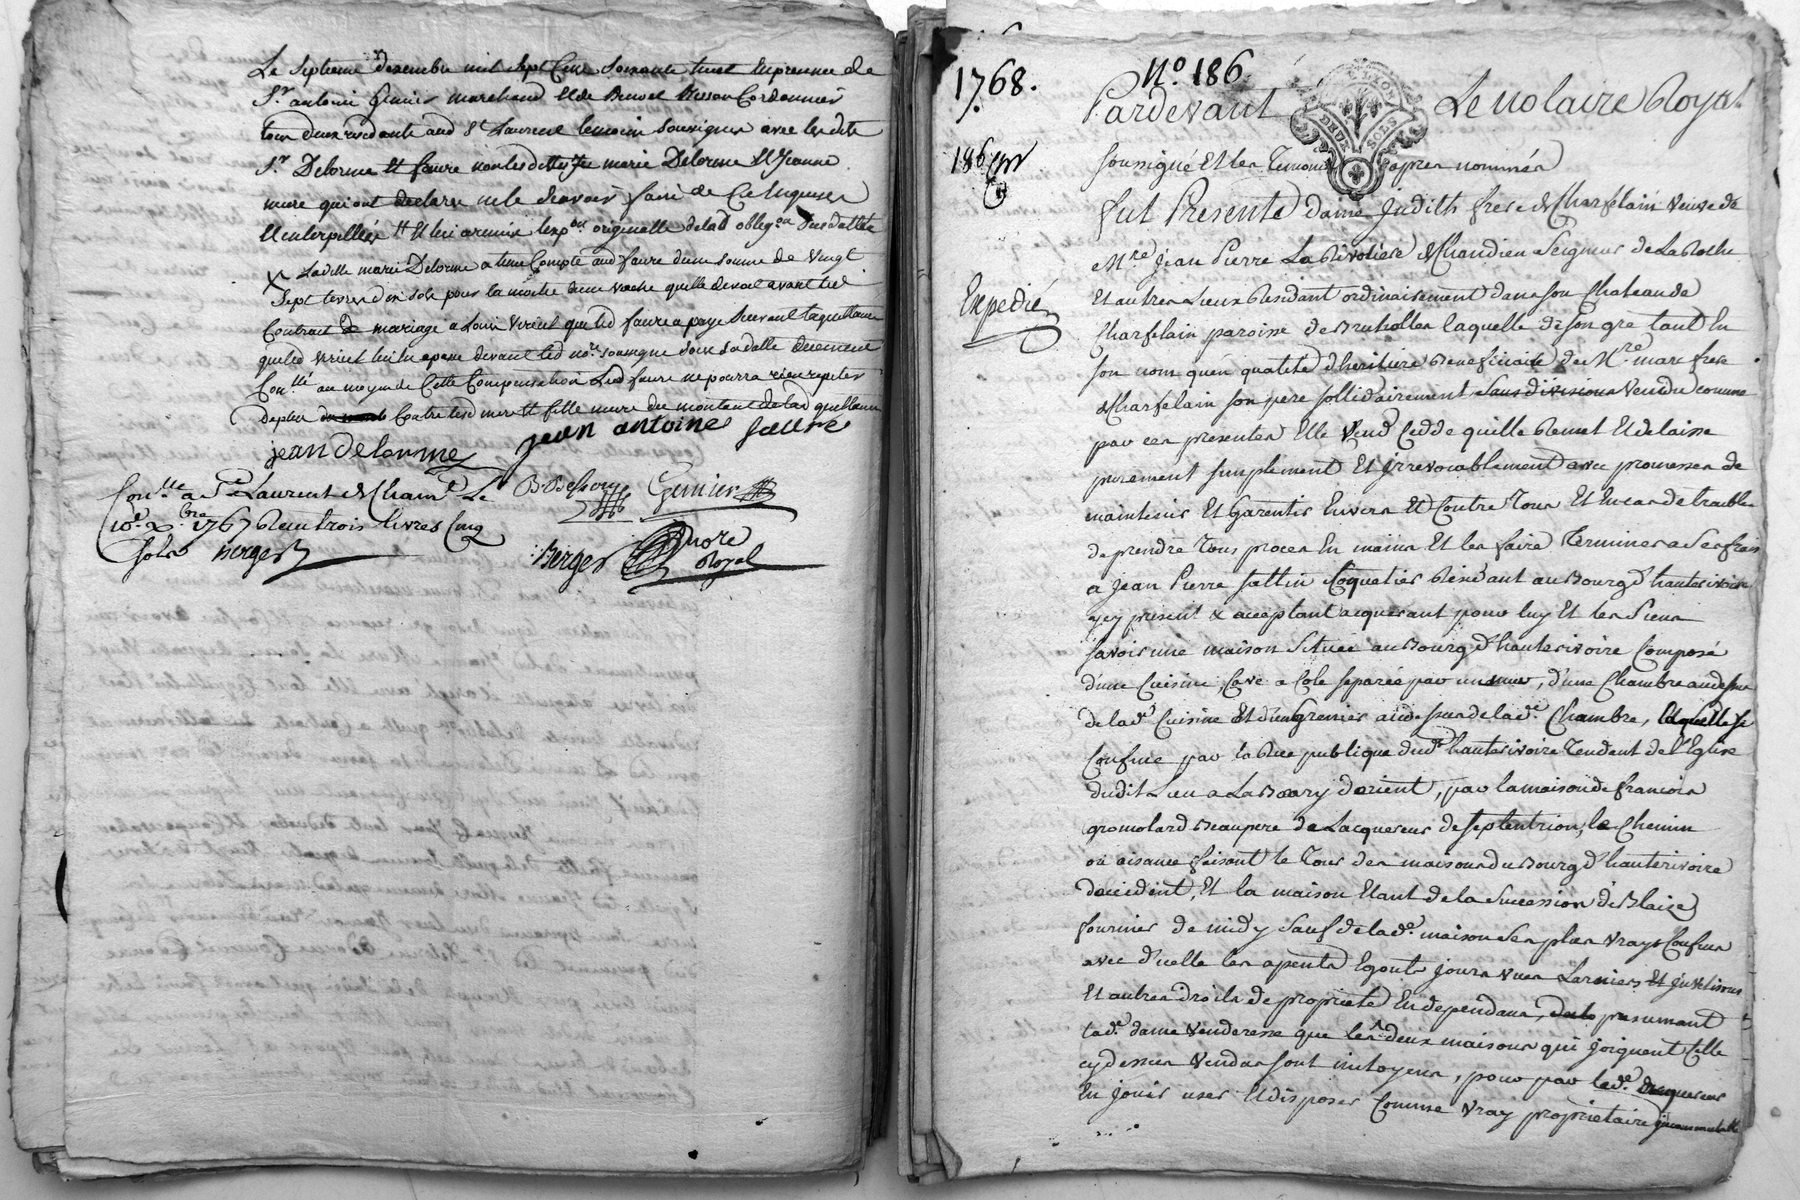 Le septieme decembre mil sept cent soixante sept En presence de
Sr antoine Grenier marchand et de Benoit Besson Cordonnier
tous deux residants aud St Laurent temoins soussignes avec lesdits
Sr Delorme et faure non lesdittes marie Delorme et Jeanne
mure qui ont declare ne le scavoir faire de ce Enquises
et interpellées
X Laditte marie Delorme a tenu Compte aud faure dune somme de vingt
sept livres dix sols pour la moitié dune vache quelle devoit avant led
Contract de mariage a Louis viricel que led faure a payé suivant la quittance
que led viricel lui en a passé devant led nore soussigné sous sa datte deuement
Conllé au moyen de cette Compensation Led faure ne pourra rien repeter
de plus Contre lesd mere et fille mure du montant de lad quittance
jean delorme jean antoine faure
B. Besson Grenier
Conllé a St Laurent de Chamt Le
10e xbre 1767 Reçu trois livres cinq
sols Berger
Berger Nore
Royal
1768. No. 186
Pardevant Le notaire Royal
DEUX SOLS
186
soussigné Et les Temoins apres nommés
fut Presente dame Judith frere de Charfetain veuve de
Mre Jean Pierre La Rivoliere de Chandieu Seigneur de La Roche
Expedié
Et autres Lieux Residant ordinairement dans son Chateau de
Charfetain paroisse de Brussolles laquelle de son gré tant En
son nom qu'en qualité d'heritiere Beneficiaire de Mre marc frere
de Charfetain son pere sollidairement sans division vendu comme
par ces presentes Elle vend cedde quitte Remet Et delaisse
purement simplement Et irrevocablement avec promesses de
maintenir Et Garentir Envers Et Contre Tous Et En cas de trouble
de prendre Tous proces En mains Et les faire Terminer a ses frais
a Jean Pierre Coquetier Residant au Bourg d'hauterivoire
icy present & acceptant acquerant pour luy Et les siens
savoir une maison Située au Bourg d'hauterivoire Composé
d'une Cuisine, Cave a Coté separée par un mur, d'une Chambre au dessus
de lade Cuisine Et d'un Grenier au dessus de lade Chambre, laquelle se
Confine par la Rue publique dud hauterivoire Tendent de l'Eglise
dudit Lieu a La d'orient, par la maison de francois
gromolard Beaupere de Lacquereur de septentrion, le Chemin
ou aisance faisant le Tour des maisons du Bourg d'hauterivoire
d'occident, Et la maison Etant de la Succession de Blaize
fournier de midy sauf de lade maison ses plus vrays Confins
avec d'icelle les apents Egouts jours vues Larmiers Et
Et autres droits de propriete En dependans, presumant
lade dame venderesse que les deux maisons qui joignent Celle
cy dessus vendue sont mitoyens, pour par led acquereur
En jouir user Et disposer Comme vray proprietaire incommutable